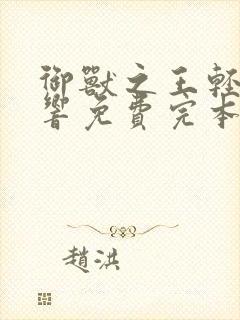 御獸之王輕
響免費完本
趙洪